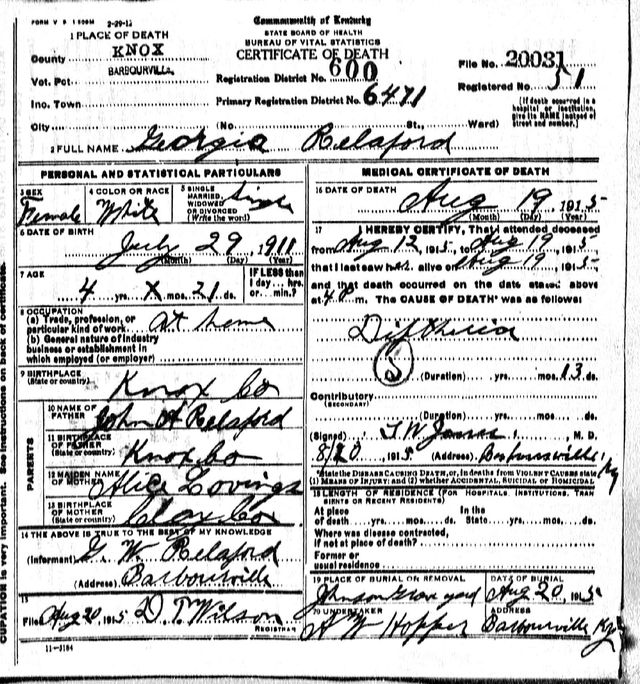 FORM V S 1 2-29-12
Commonwealth of Kentucky
STATE BOARD OF HEALTH
BUREAU OF VITAL STATISTICS
CERTIFICATE OF DEATH
1 PLACE OF DEATH
County KNOX
Vot. Pct BARBOURVILLE
Inc. Town
City
Registration District No. 600
Primary Registration District No. 6471
File No. 20031
Registered No. 51
(No. St., Ward)
[If death occurred in a hospital or institution, give its NAME instead of street and number.]
2 FULL NAME Georgia Relaford
PERSONAL AND STATISTICAL PARTICULARS
3 SEX Female
4 COLOR OR RACE White
5 SINGLE, MARRIED, WIDOWED OR DIVORCED (Write the word) Single
6 DATE OF BIRTH July 29, 1911
(Month) (Day) (Year)
7 AGE 4 yrs. X mos. 21 ds.
IF LESS than 1 day ... hrs. or ... min.?
8 OCCUPATION
(a) Trade, profession, or particular kind of work At home
(b) General nature of industry business or establishment in which employed (or employer)
9 BIRTHPLACE (State or country) Knox Co
PARENTS
10 NAME OF FATHER John H Relaford
11 BIRTHPLACE OF FATHER (State or country) Knox Co
12 MAIDEN NAME OF MOTHER Alice Lovings
13 BIRTHPLACE OF MOTHER (State or country) Clay Co
14 THE ABOVE IS TRUE TO THE BEST OF MY KNOWLEDGE
(Informant) G. W. Relaford
(Address) Barbourville
15
Filed Aug 20, 1915 D. T. Wilson
REGISTRAR
11-3184
MEDICAL CERTIFICATE OF DEATH
16 DATE OF DEATH Aug 19 1915
(Month) (Day) (Year)
17 I HEREBY CERTIFY, That I attended deceased
from Aug 12, 1915, to Aug 19 1915
that I last saw her alive on Aug 19, 1915
and that death occurred on the date stated above
at m. The CAUSE OF DEATH* was as follows:
Diftheria
(Duration) yrs. mos. 13 ds.
Contributory
(SECONDARY)
(Duration) yrs. mos. ds.
(Signed) M. D.
8/20, 1915 (Address) Barbourville Ky
*State the DISEASE CAUSING DEATH, or, in deaths from VIOLENT CAUSES state (1) MEANS OF INJURY; and (2) whether ACCIDENTAL, SUICIDAL or HOMICIDAL
18 LENGTH OF RESIDENCE (FOR HOSPITALS, INSTITUTIONS, TRANSIENTS OR RECENT RESIDENTS)
At place of death yrs. mos. ds. In the State yrs. mos. ds.
Where was disease contracted, if not at place of death?
Former or usual residence
19 PLACE OF BURIAL OR REMOVAL Johnson Grave yard
DATE OF BURIAL Aug 20, 1915
20 UNDERTAKER Hopper
ADDRESS Barbourville Ky
CUPATION is very important. See instructions on back of certificate.